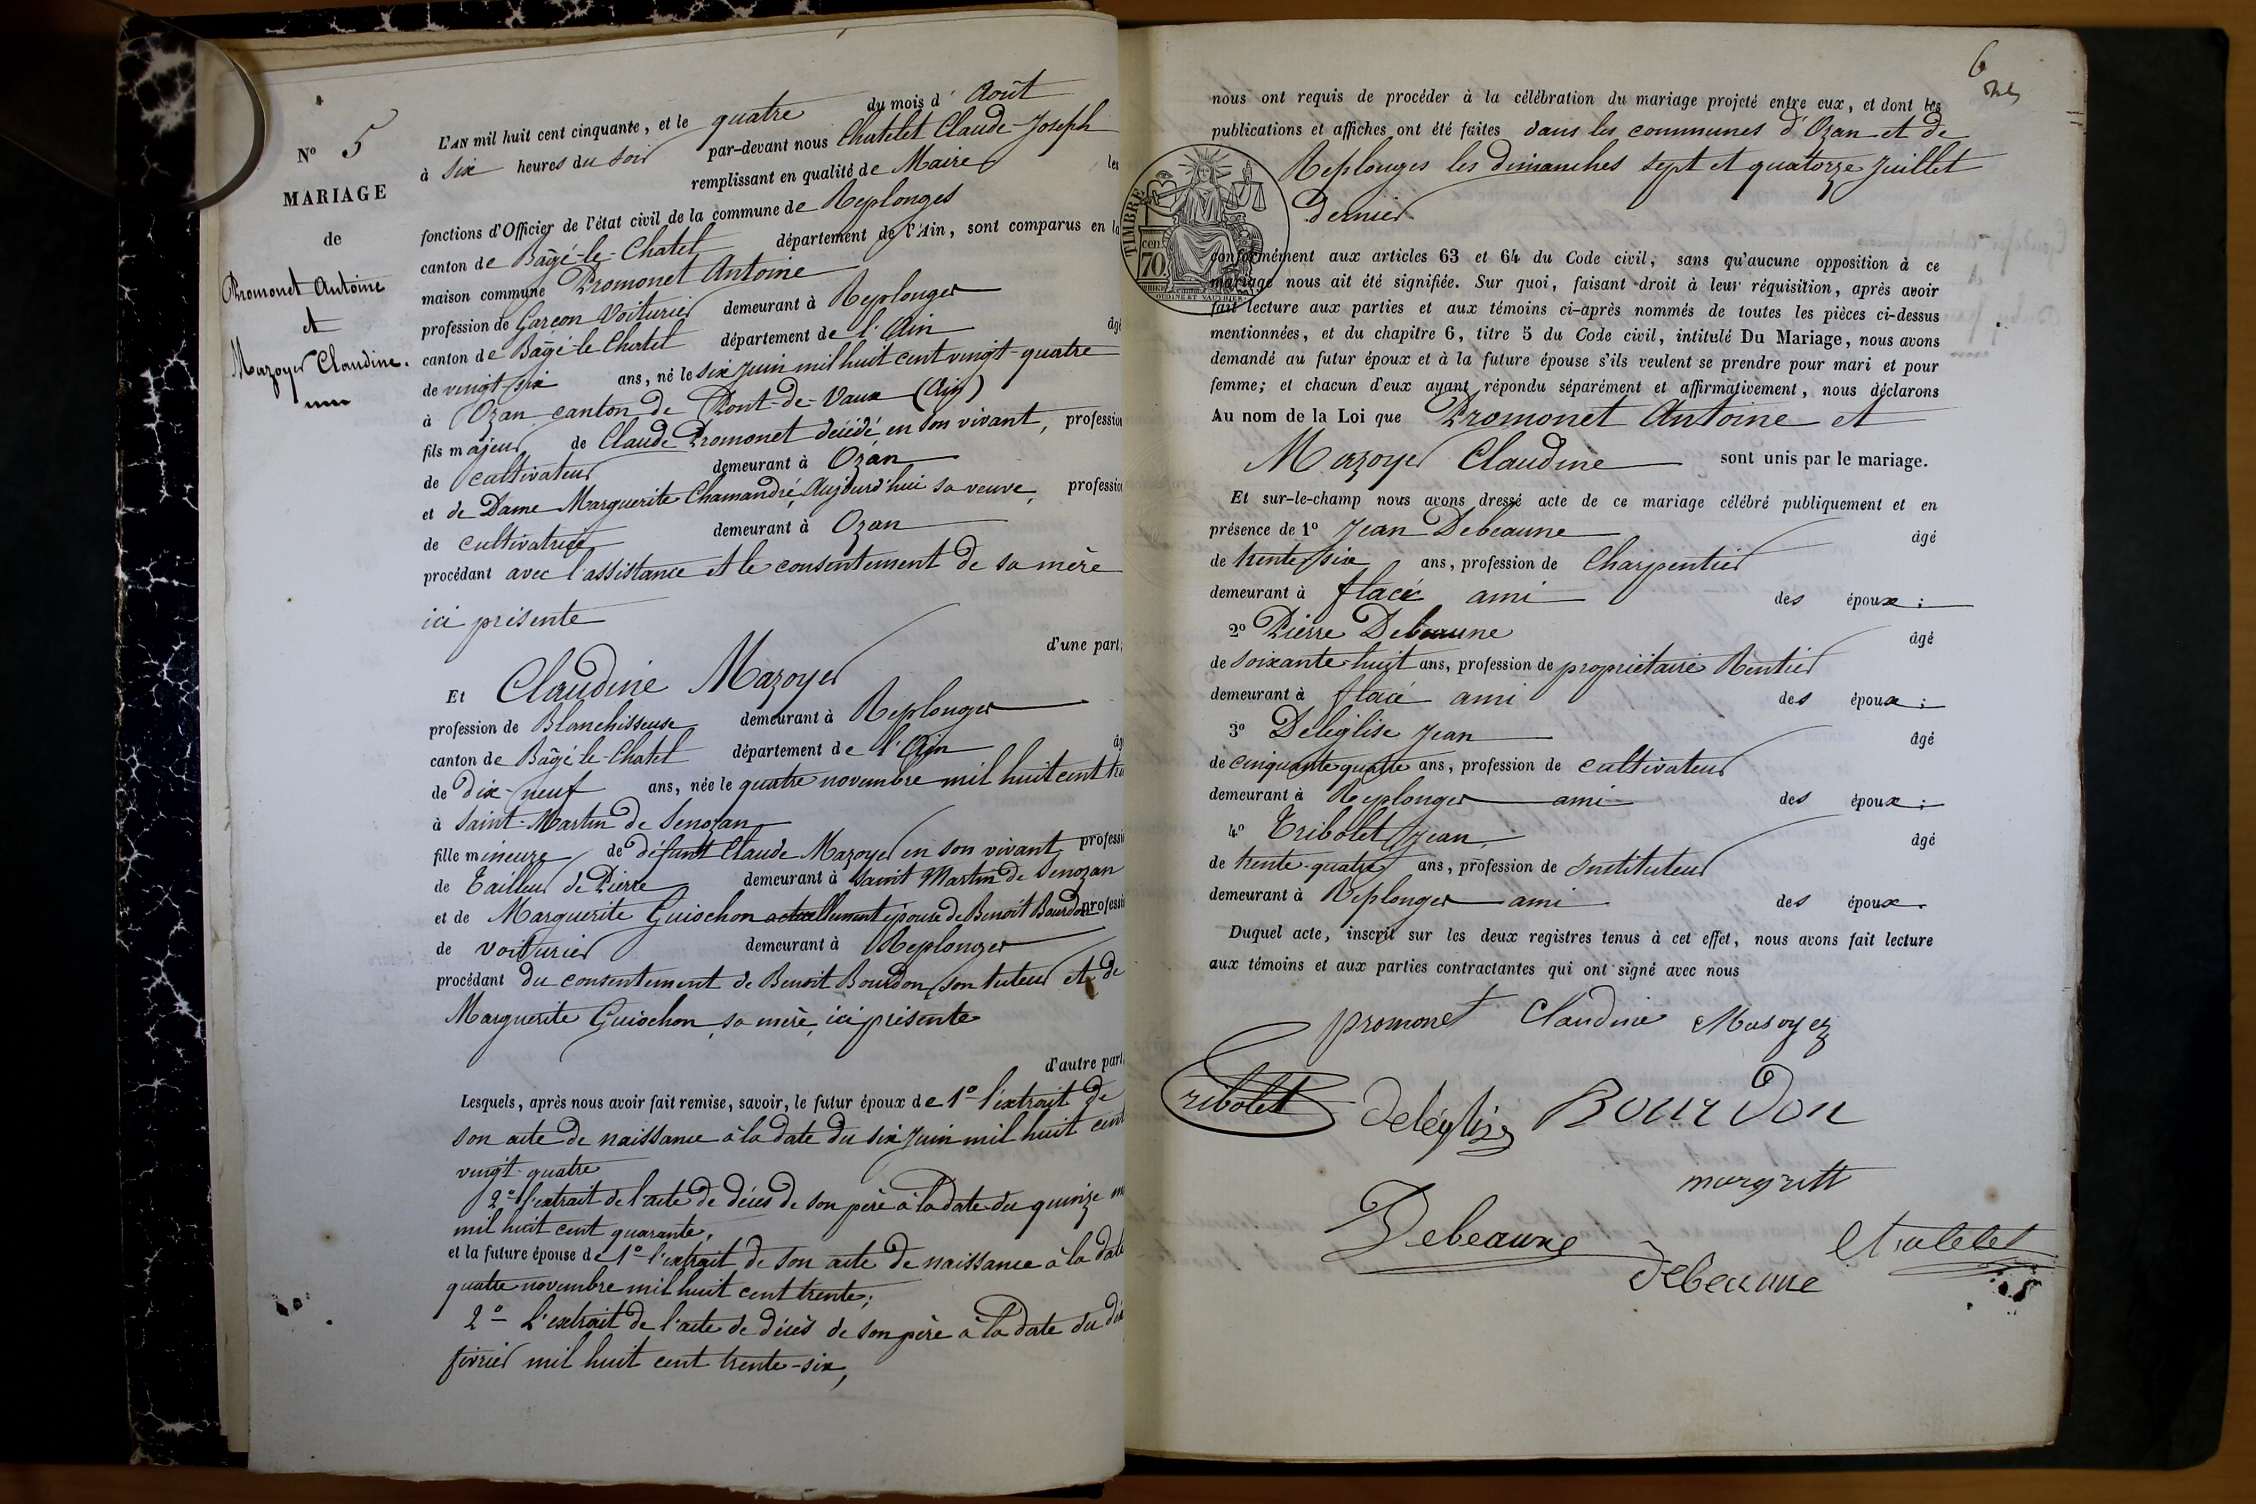 N° 5
MARIAGE
de
Promonet Antoine
et
Mazoyer Claudine.
L'AN mil huit cent cinquante, et le quatre du mois d' Août
à six heures du soir par-devant nous Chatelet Claude-Joseph
remplissant en qualité de Maire les
fonctions d'Officier de l'état civil de la commune de Replonges
canton de Bâgé-le-Chatel département de l'Ain, sont comparus en la
maison commune Promonet Antoine
profession de Garçon Voiturier demeurant à Replonges
canton de Bâgé-le-Chatel département de l'Ain âgé
de vingt six ans, né le six juin mil huit cent vingt-quatre
à Ozan canton de Pont-de-Vaux (Ain)
fils majeur de Claude Promonet décédé en son vivant, profession
de cultivateur demeurant à Ozan
et de Dame Marguerite Chamandré, Aujourd'hui sa veuve, profession
de cultivatrice demeurant à Ozan
procédant avec l'assistance et le consentement de sa mère
ici présente
d'une part;
Et Claudine Mazoyer
profession de Blanchisseuse demeurant à Replonges
canton de Bâgé-le-Chatel département de l'Ain âg
de dix-neuf ans, née le quatre novembre mil huit cent tre
à Saint-Martin de Senozan
fille mineure de défunt Claude Mazoyer en son vivant professi
de Tailleur de Pierre demeurant à Saint Martin de Senozan
et de Marguerite Guiochon actuellement épouse de Benoit Bourdon professi
de voiturier demeurant à Replonges
procédant du consentement de Benoit Bourdon, son tuteur et de
Marguerite Guiochon, sa mère, ici présente
d'autre part
Lesquels, après nous avoir fait remise, savoir, le futur époux de 1° l'extrait de
son acte de naissance à la date du six juin mil huit cent
vingt-quatre
2° l'extrait de l'acte de décès de son père à la date du quinze
mil huit cent quarante,
et la future épouse de 1° l'extrait de son acte de naissance à la date
quatre novembre mil huit cent trente;
2° L'extrait de l'acte de décès de son père à la date du
février mil huit cent trente-six,
6
nous ont requis de procéder à la célébration du mariage projeté entre eux, et dont les
publications et affiches ont été faites dans les communes d'Ozan et de
Replonges les dimanches sept et quatorze Juillet
dernier
TIMBRE
cen.
70
conformément aux articles 63 et 64 du Code civil, sans qu'aucune opposition à ce
mariage nous ait été signifiée. Sur quoi, faisant droit à leur réquisition, après avoir
fait lecture aux parties et aux témoins ci-après nommés de toutes les pièces ci-dessus
mentionnées, et du chapitre 6, titre 5 du Code civil, intitulé Du Mariage, nous avons
demandé au futur époux et à la future épouse s'ils veulent se prendre pour mari et pour
femme; et chacun d'eux ayant répondu séparément et affirmativement, nous déclarons
Au nom de la Loi que Promonet Antoine et
Mazoyer Claudine sont unis par le mariage.
Et sur-le-champ nous avons dressé acte de ce mariage célébré publiquement et en
présence de 1° Jean Debeaune âgé
de trente six ans, profession de Charpentier
demeurant à flacé ami des époux;
2° Pierre Debeaune âgé
de soixante-huit ans, profession de propriétaire Rentier
demeurant à flacé ami des époux;
3° Deléglise Jean âgé
de cinquante quatre ans, profession de cultivateur
demeurant à Replonges ami des époux;
4° Tribolet Jean âgé
de trente-quatre ans, profession de Instituteur
demeurant à Replonges ami des époux.
Duquel acte, inscrit sur les deux registres tenus à cet effet, nous avons fait lecture
aux témoins et aux parties contractantes qui ont signé avec nous
promonet Claudine Masoyez
Tribolet deléglize BOURDON
margritt
Debeaune debeaune Chatelet